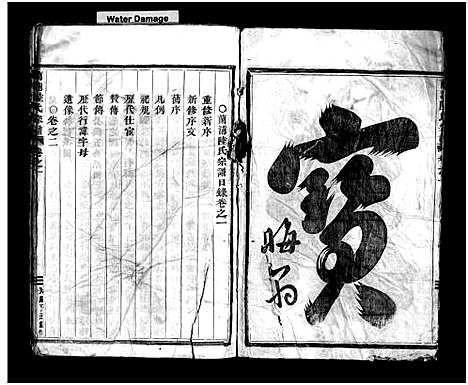 Water Damage
寶
晦翁
○蘭清陸氏宗譜目錄卷之一
重修新序
新修序文
舊序
凡例
祀規
歷代仕宦
贊傳
節傳
歷代行諱字母
遺像
○卷之二